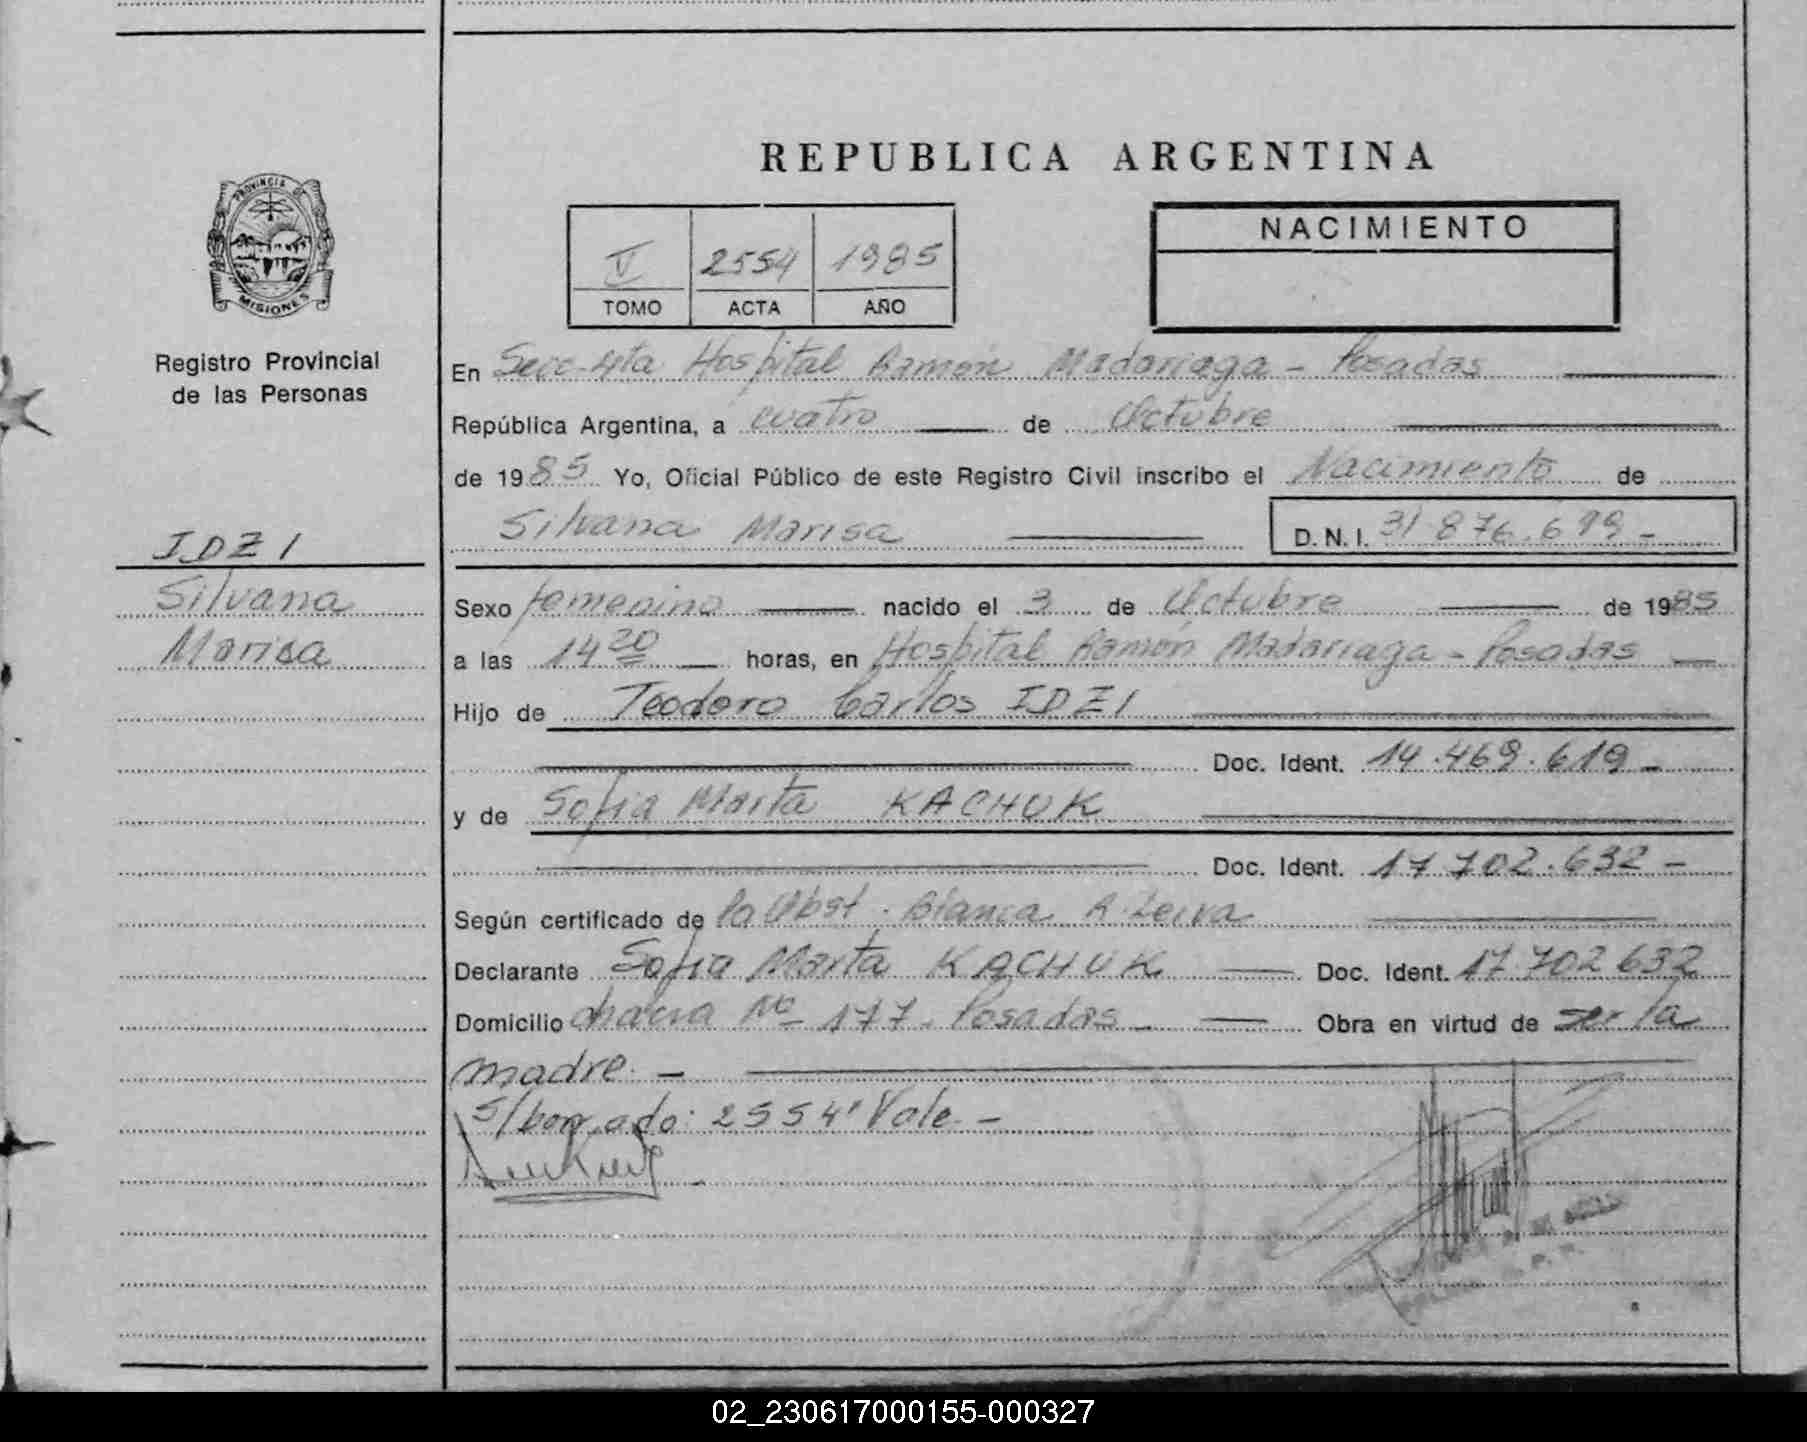 PROVINCIA DE
MISIONES
Registro Provincial
de las Personas
IDZI
Silvana
Marisa
REPUBLICA ARGENTINA
V 2554 1985
TOMO ACTA AÑO
NACIMIENTO
En Secc. 4ta Hospital Ramón Madariaga - Posadas
República Argentina, a cuatro de Octubre
de 1985 Yo, Oficial Público de este Registro Civil inscribo el Nacimiento de
Silvana Marisa D.N.I. 31.876.699-
Sexo femenino nacido el 3 de Octubre de 1985
a las 14 20 horas, en Hospital Ramón Madariaga - Posadas
Hijo de Teodoro Carlos IDZI
Doc. Ident. 14.469.619-
y de Sofia Marta KACHUK
Doc. Ident. 17.702.632-
Según certificado de la Obst. Blanca R. Leiva
Declarante Sofia Marta KACHUK Doc. Ident. 17 702 632
Domicilio chacra Nº 177. Posadas - Obra en virtud de ser la
madre. -
S/borrado: 2554' Vale. -
02_230617000155-000327